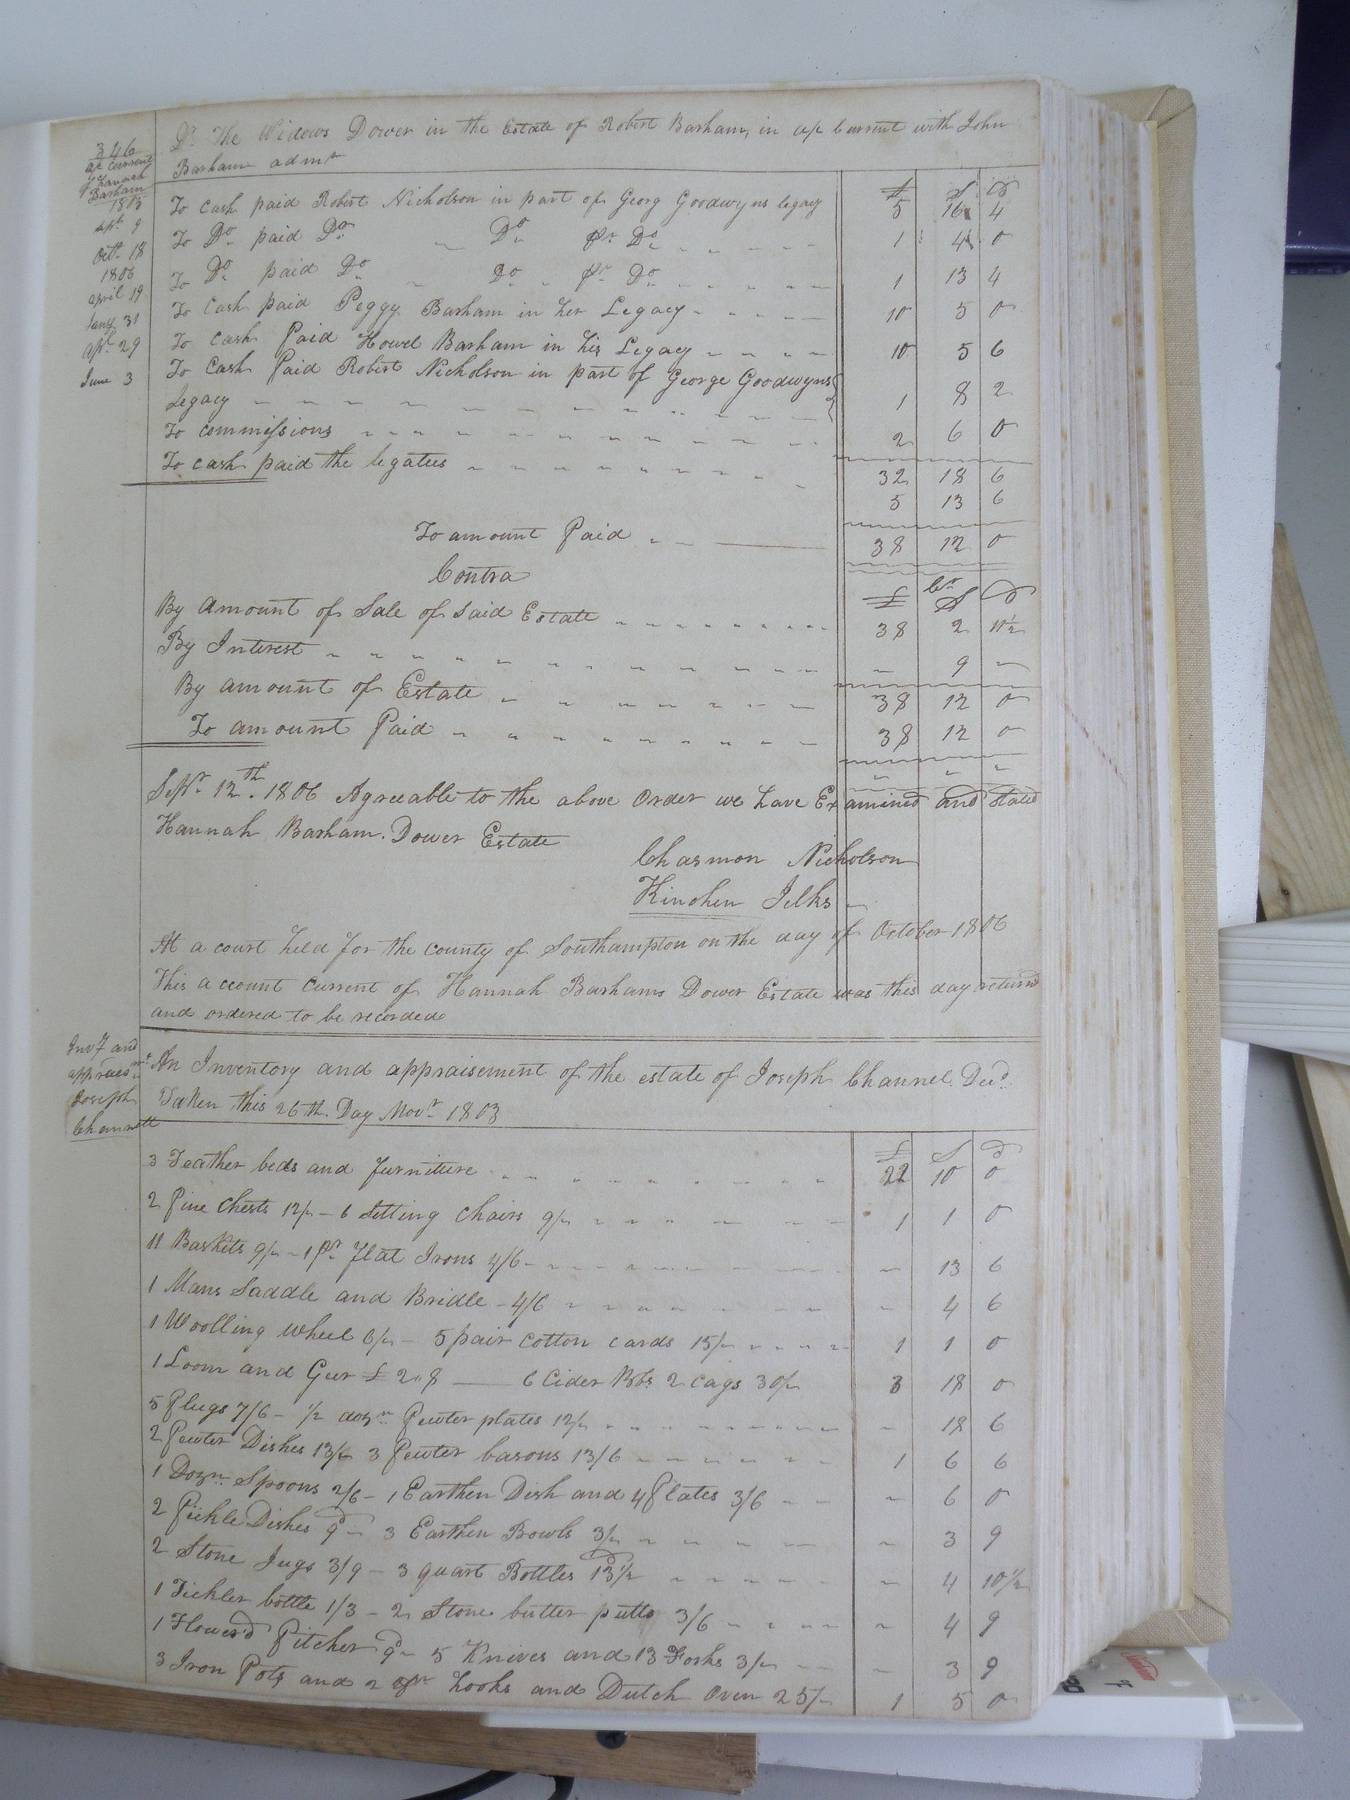 346
a/c current
Hannah
Barham
Dr. The Widows Dower in the Estate of Robert Barham, in a/c Current with John
Barham admr
£ S D
1803
Apl. 9 To Cash paid Robert Nicholson in part of Georg Goodwyns legacy 5 16 4
Octr. 18 To Do. paid Do. Do. Pr. Do. 1 4 0
1806
april 19 To Do. paid Do. Do. Pr. Do. 1 13 4
Jany 31 To Cash paid Peggy Barham in her Legacy 10 5 0
Apl. 29 To Cash Paid Howel Barham in his Legacy 10 5 6
June 3 To Cash Paid Robert Nicholson in part of George Goodwyns
Legacy 1 8 2
To commissions 2 6 0
To cash paid the legatees 32 18 6
5 13 6
To amount Paid 38 12 0
Contra Cr.
£ S D
By Amount of Sale of said Estate 38 2 11½
By Interest - 9 -
By amount of Estate 38 12 0
To amount Paid 38 12 0
Sepr. 12th. 1806 Agreeable to the above Order we have Examined and stated
Hannah Barham. Dower Estate
Charmon Nicholson
Kinchen Jelks
At a court held for the county of Southampton on the day of October 1806
This account Current of Hannah Barhams Dower Estate was this day returnd
and ordered to be recorded
Invy and
appraismt.
Joseph
Channell
An Inventory and appraisement of the estate of Joseph Channel Decd.
Taken this 26th. Day Novr. 1803
£ S d
3 Feather beds and furniture 22 10 0
2 Pine Chests 12/- 6 Setting Chairs 9/- 1 1 0
11 Baskets 9/- 1 Pr. Flat Irons 4/6 - 13 6
1 Mans Saddle and Bridle - 4/6 - 4 6
1 Woolling wheel 6/- 5 pair cotton cards 15/- 1 1 0
1 Loom and Geer £2.8 6 Cider Bbs. 2 cags 30/- 3 18 0
5 Plugs 7/6 - ½ dozn. Pewter plates 12/- - 18 6
2 Pewter Dishes 13/- 3 Pewter basons 13/6 1 6 6
1 Dozn. Spoons 2/6 - 1 Earthen Dish and 4 Plates 3/6 - 6 0
2 Pickle Dishes 9d - 3 Earthen Bowls 3/- - 3 9
2 Stone Jugs 3/9 - 3 quart Bottles 13½d - 4 10½
1 Tickler bottle 1/3 - 2 Stone butter potts 3/6 - 4 9
1 Flower'd Pitcher 9d - 5 Knives and 13 Forks 3/- - 3 9
3 Iron Pots and 2 pr hooks and Dutch Oven 25/- 1 5 0